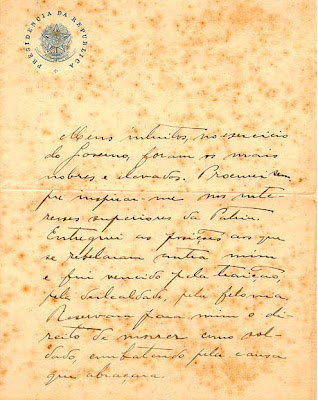 PRESIDENCIA DA REPUBLICA
Meus intuitos, no exercicio
do Governo, foram os mais
nobres e elevados. Procurei sem-
pre inspirar-me nos inte-
resses superiores da Patria.
Entreguei as posições aos que
se rebelaram contra mim
e fui vencido pela traição,
pela deslealdade, pela felonia.
Reservara para mim o di-
reito de morrer como sol-
dado, combatendo pela causa
que abraçara